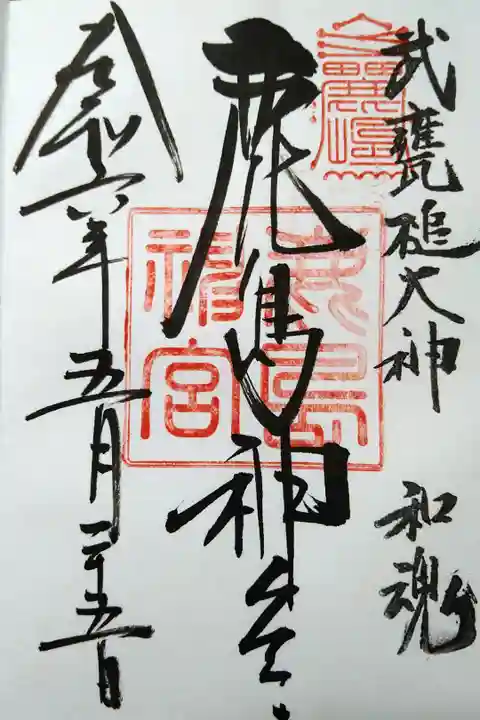 武甕槌大神 和魂
鹿島神宮
令和六年五月二十五日
鹿島
神宮